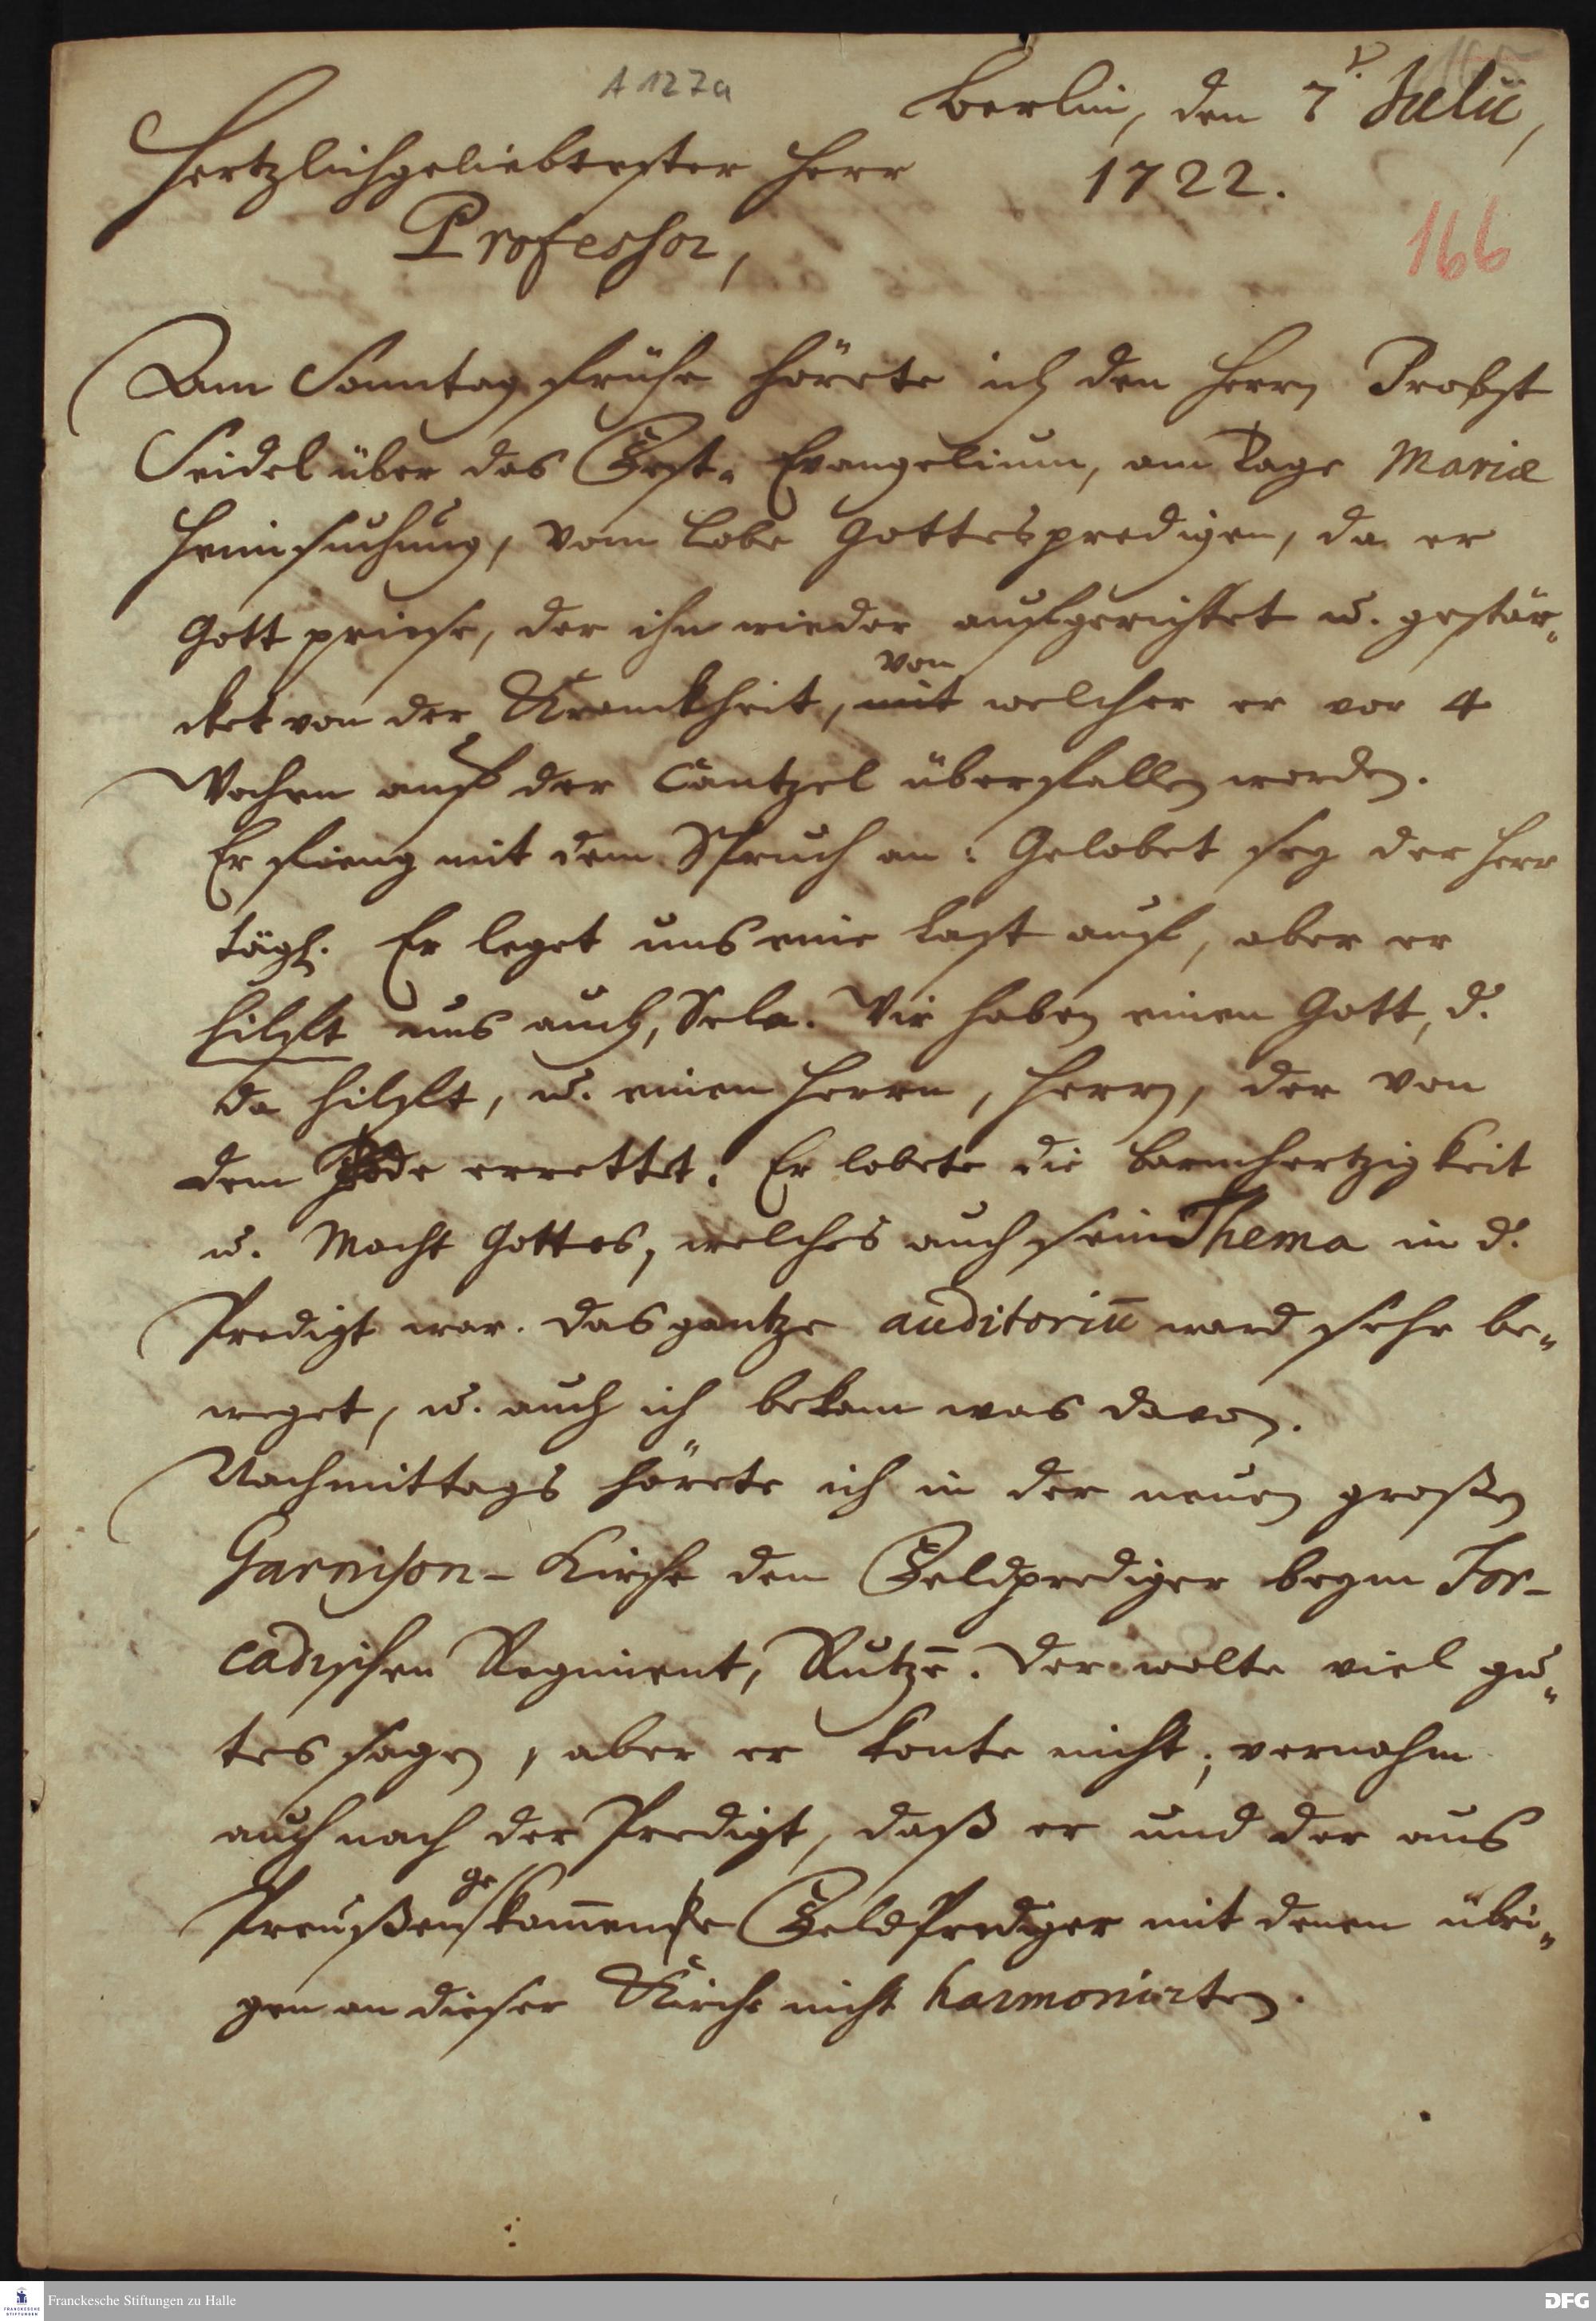 A 127a
Berlin, den 7. Julii,
Hertzlichgeliebtester Herr
1722.
Professor,
166
Am Sonntag frühe hörete ich den Herrn Probst
Seidel über das Fest- Evangelium, am Tage Mariæ
Heimsuchung, vom Lobe Gottes predigen, da er
Gott priese, der ihn wieder aufgerichtet u. gestär-
von
cket von der Kranckheit, mit welcher er vor 4
Wochen auf der Cantzel überfallen worden.
Er fieng mit dem Spruch an: Gelobet sey der Herr
tägl. Er leget uns eine Last auf, aber er
hilfft uns auch, Sela. Wir haben einen Gott, d.
da hilfft, u. einen Herrn, Herrn, der von
dem Tode errettet. Er lobete die Barmhertzigkeit
u. Macht Gottes, welches auch sein Thema in d.
Predigt war. Das gantze auditoriū ward sehr be-
weget, u. auch ich bekam was davon.
Nachmittags hörete ich in der neuen großen
Garnison- Kirche den Feldprediger beym For-
cadischen Regiment, Rutzē. Der wolte viel gu-
tes sagen, aber er konte nicht; vernahm
auch nach der Predigt, daß er und der aus
ge
Preußen kom̄ene Feldprediger mit denen übri-
gen an dieser Kirche nicht harmonirten.
Franckesche Stiftungen zu Halle
DFG